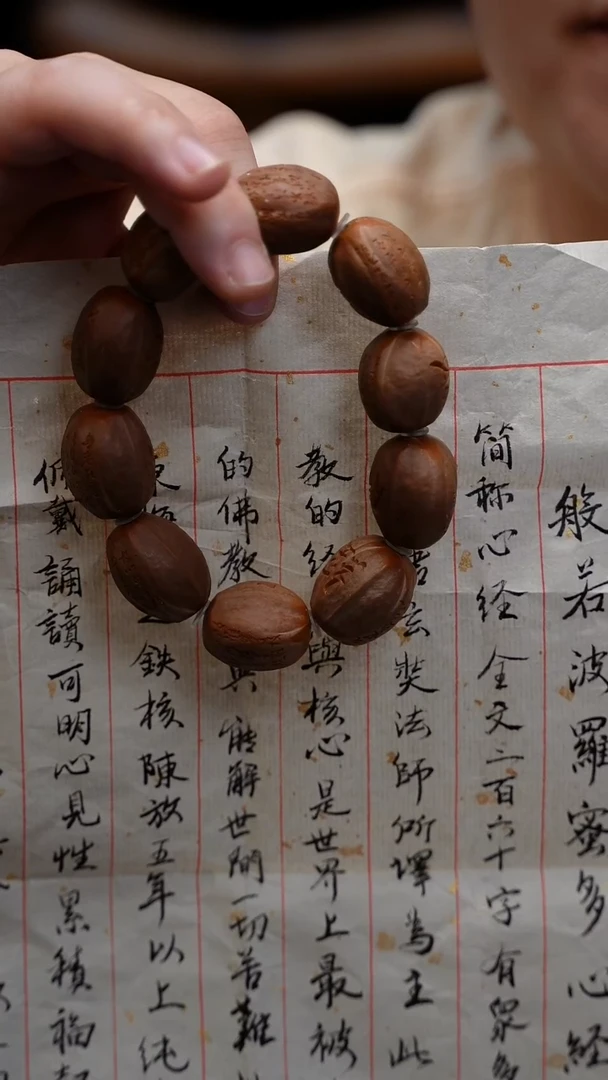 般若波羅蜜多心経
简称心经全文二百六十字有衆多
玄奘法師所譯為主此
教的经與核心是世界上最被
的佛教與能解世間一切苦難
鉄核陳放五年以上纯
佩戴誦讀可明心見性累積福